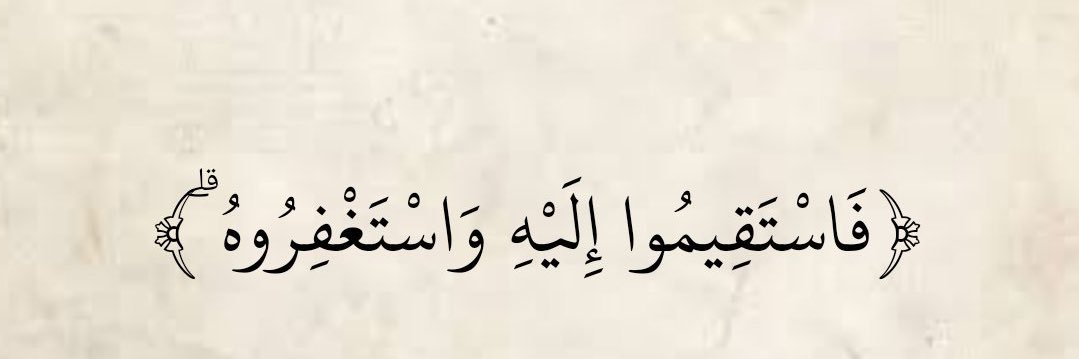 ﴿ فَاسْتَقِيمُوا إِلَيْهِ وَاسْتَغْفِرُوهُ ۗ ﴾